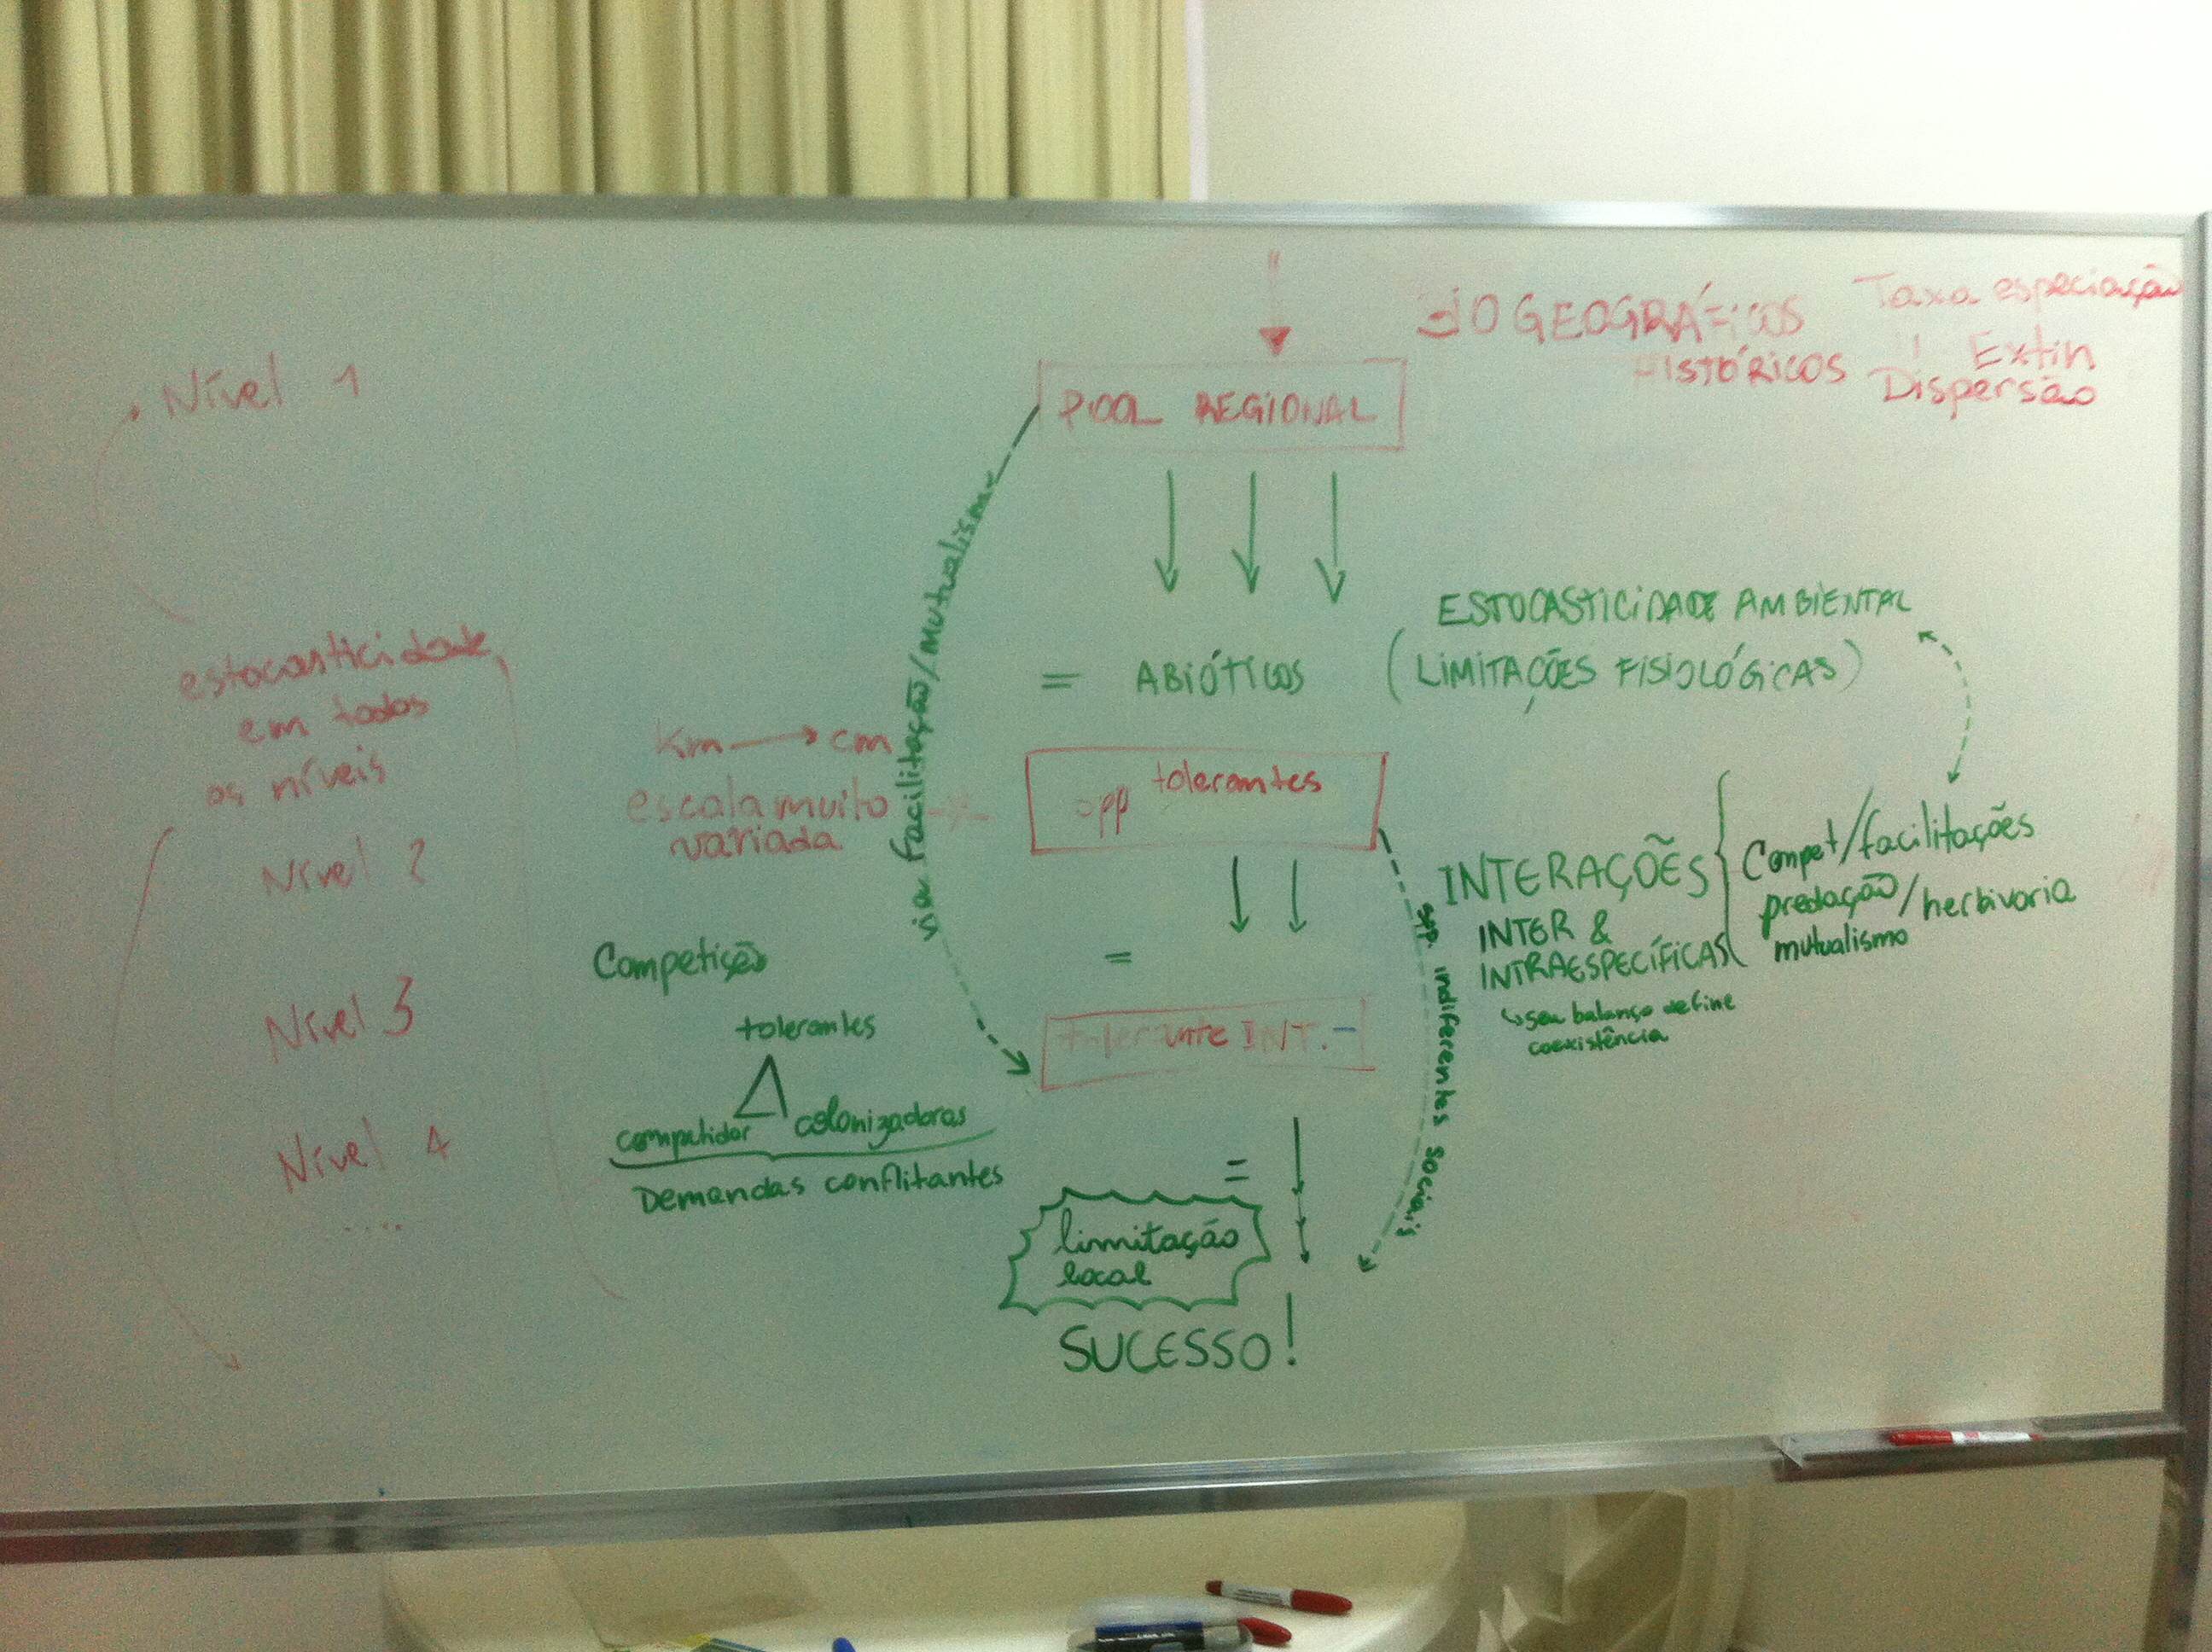 Nível 1
estocasticidade
em todos
os níveis
Nível 2
Nível 3
Nível 4
....
Km → cm
escala muito
variada
Competição
tolerantes
Δ
competidor colonizadoras
Demandas conflitantes
via facilitação/mutualismo
POOL REGIONAL
= ABIÓTICOS
spp tolerantes
=
tolerante INT. -
=
limitação
local
SUCESSO!
BIOGEOGRÁFICOS
HISTÓRICOS
Taxa especiação
Extin
Dispersão
ESTOCASTICIDADE AMBIENTAL
(LIMITAÇÕES FISIOLÓGICAS)
INTERAÇÕES
INTER &
INTRAESPECÍFICAS
↳ seu balanço define
coexistência
Compet/facilitações
predação/herbivoria
mutualismo
spp. indiferentes sociais